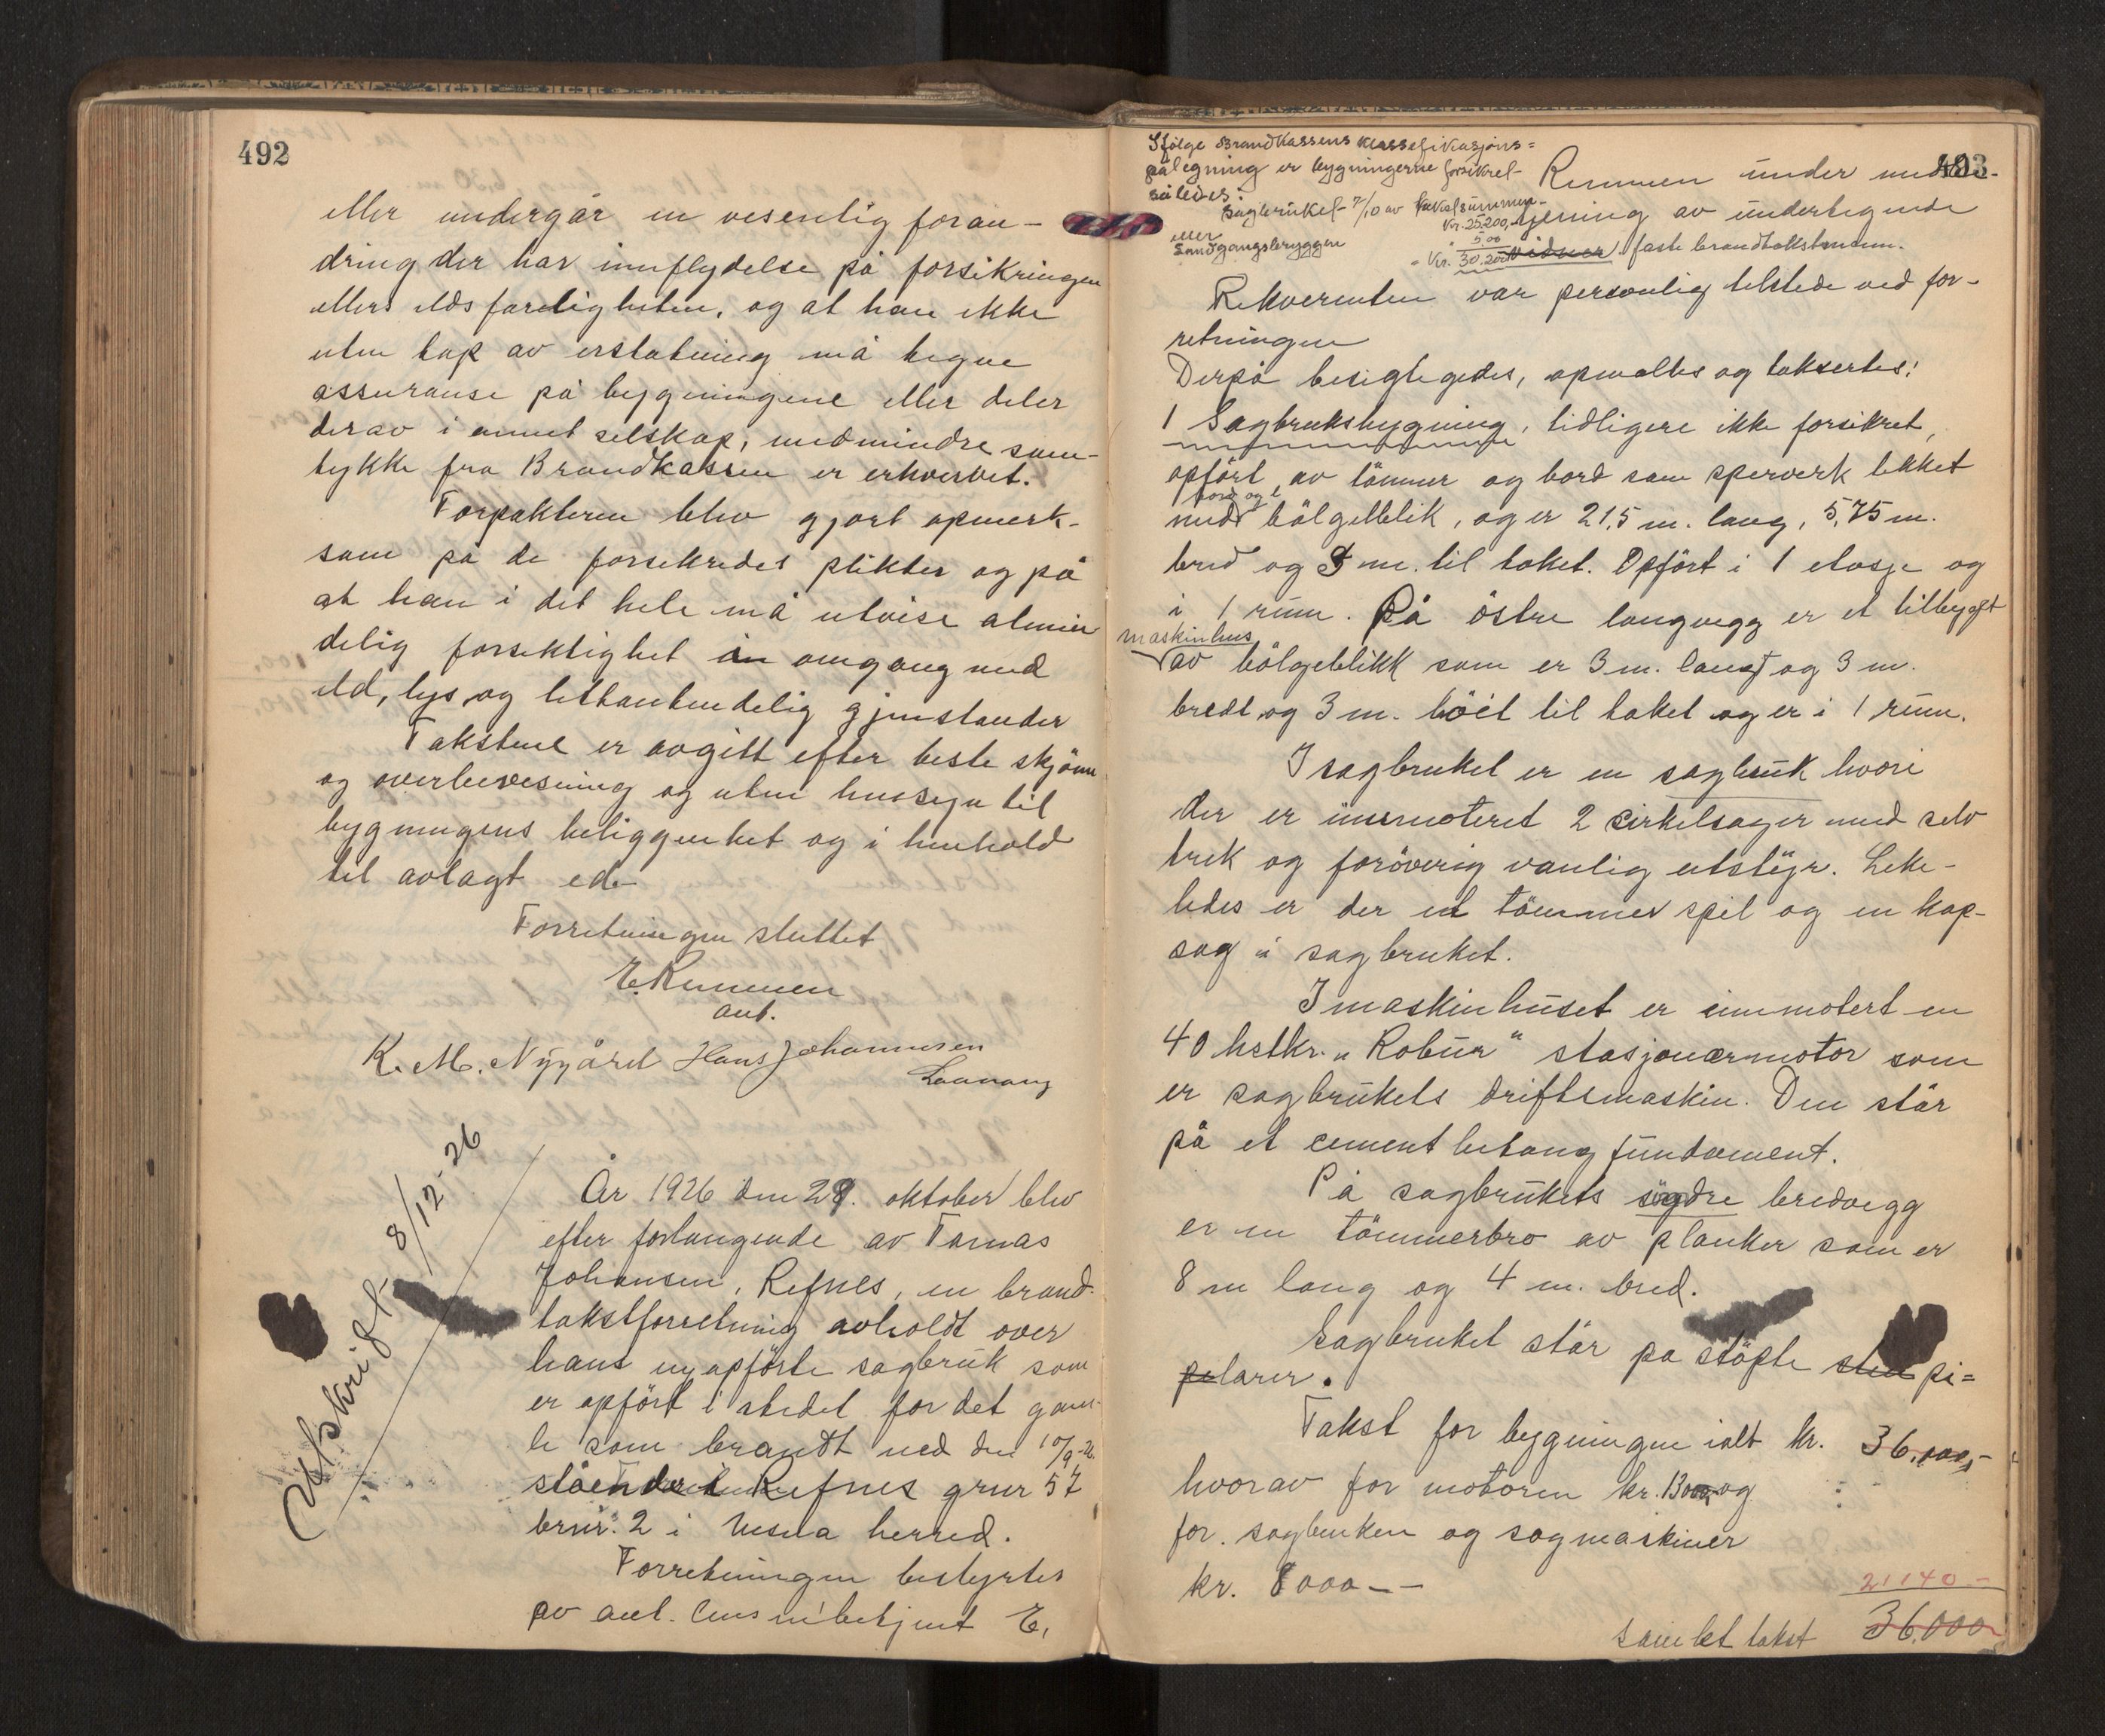 492
eller undergår en vesentlig foran-
dring der har innflydelse på forsikringen
ellers ildsfarligheten, og at han ikke
uten tap av erstatning må tegne
assuranse på bygningene eller deler
derav i annet selskap, medmindre sam-
tykke fra Brandkassen er erhvervet.
Forpakteren blev gjort opmerk-
som på de forsikredes plikter og på
at han i det hele må utvise almin
delig forsiktighet in omgang med
ild, lys og letantendelig gjenstander
Takstene er avgitt efter beste skjønn
og overbevisning og uten hensyn til
bygningens beliggenhet og i henhold
til avlagt ed-
Forretningen sluttet
E. Remmen
aut.
K. M. Nygård Hans Johannesen
Laanang
Utskrift 8/12-26
År 1926 den 29. oktober blev
efter forlangende av Tomas
Johansen, Refnes, en brand-
takstforretning avholdt over
hans nyopførte sagbruk som
er opført i stedet for det gam-
le som brandt ned den 10/9-26.
stående i Refnes gnr 57
brnr. 2 i Nesna herred.
Forretningen bestyrtes
av aut. lensm.betjent E.
493
Ifølge Brandkassens klassefikasjons=
pålegning er bygningerne forsikret
således:
Sagbruket 7/10 av takstsummen
kr. 25200,-
eller
Landgangsbryggen " 5.00
" kr. 30.200
Remmen under med-
virkning av undertegnede
vidner faste brandtakstmenn.
Rekvirenten var personlig tilstede ved for-
retningen
Derpå besigtigedes, opmaltes og taksertes:
1 Sagbruksbygning, tidligere ikke forsikret,
opført av tømmer og bord som sperverk tekket
bord og
med bølgeblik, og er 21,5 m. lang, 5,75 m.
bred og 3 m. til taket. Opført i 1 etasje og
i 1 rum. På østre langvegg er et tilbygft
maskinhus
av bølgeblikk som er 3 m. langt og 3 m.
bredt og 3 m. høit til taket og er i 1 rum.
I sagbruket er en sagbruk hvori
der er innmoteret 2 cirkelsager med selv
trek og forøverig vanlig utstyr. Like-
ledes er der et tømmer spil og en kap-
sag i sagbruket.
I maskinhuset er innmotert en
40 hstkr. "Robur" stasjonærmotor som
er sagbrukets driftsmaskin. Den står
på et cement betong fundament.
På sagbrukets søndre bredvegg
er en tømmerbro av planker som er
8 m lang og 4 m. bred.
Sagbruket står på støpte sten pi=
pelarer.
Takst for bygningen ialt kr. 36.000,-
hvorav for motoren kr. 13000,- og
for sagbenken og sagmaskiner
kr. 8000--
21140-
Samlet takst 36.000